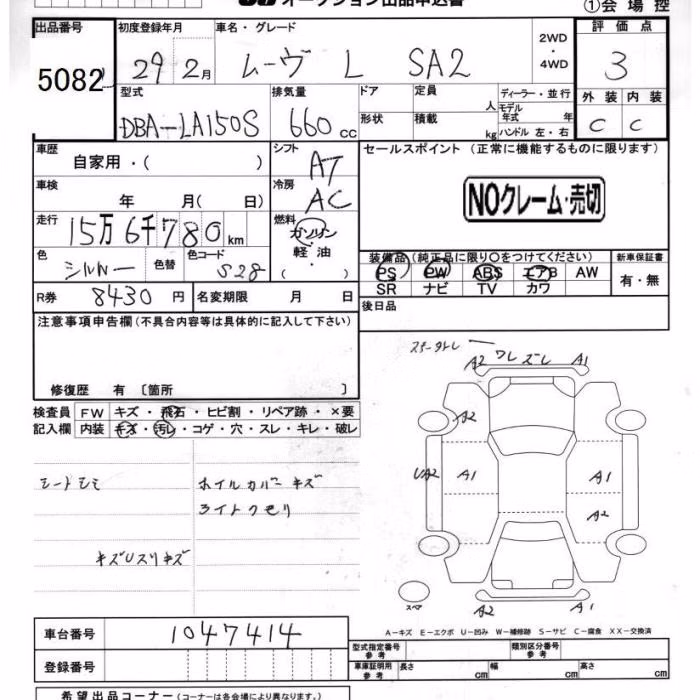 オークション出品申込書
①会場控
出品番号 初度登録年月 車名・グレード 評価点
5082 29 2月 ムーヴ L SA2 2WD・4WD 3
型式 排気量 ドア 定員 人 ディーラー・並行 外装 内装
DBA-LA150S 660cc 形状 積載 kg モデル年式 年 ハンドル 左・右 C C
車歴 自家用・( ) シフト AT セールスポイント (正常に機能するものに限ります)
車検 年 月(日) 冷房 AC NOクレーム・売切
走行 15万6千780km 燃料 ガソリン・軽油・( )
色 シルバー 色替 色コード S28 装備品 (純正品に限り○をつけてください) 新車保証書
PS PW ABS エアB AW 有・無
SR ナビ TV カワ
R券 8430円 名変期限 月 日 後日品
注意事項申告欄(不具合内容等は具体的に記入して下さい)
修復歴 有 〔箇所 〕
検査員 FW キズ・飛石・ヒビ割・リペア跡・×要
記入欄 内装 キズ・汚レ・コゲ・穴・スレ・キレ・破レ
A2 ワレ ズレ A1
A2
シートシミ ホイルカバーキズ UA2 A1 A1
ライトクモリ A2
キズUスリキズ
スペア A2 A1
A-キズ E-エクボ U-凹み W-補修跡 S-サビ C-腐食 XX-交換済
車台番号 1047414 型式指定番号 参考 類別区分番号 参考
登録番号 車庫証明用 参考 長さ cm 幅 cm 高さ cm
希望出品コーナー(コーナーは各会場により異なります。)